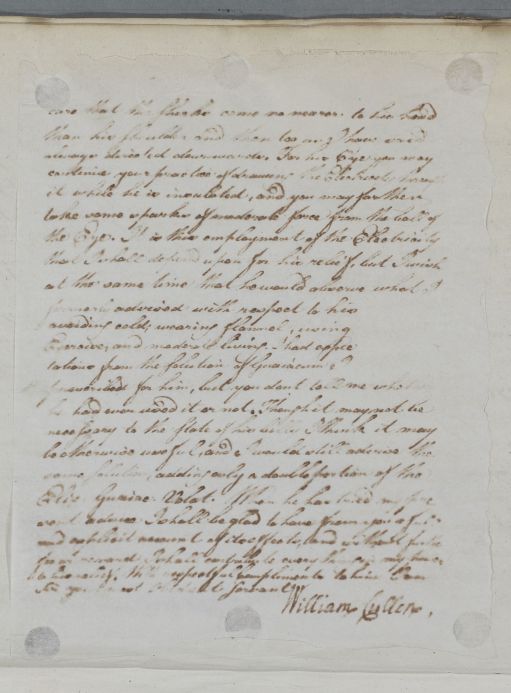 care that the shocks come no nearer to his head
than his shoulder and then
always directed downwards. For his Eye you may
continue your practice of drawing the Electricity
it while he is insulated, and you may farther
take some sparks of moderate force from the ball of
the Eye. It is this employment of the Electricity
that I shall depend upon for his relief, but I wish
at the same time that he would observe what I
formerly advised with respect to his
avoiding cold, wearing flannel, using
Exercise, and moderate living. I had
from the solution of Guaiacum I
prescribed for him, but you dont tell me
he had ever used it or not. Though it may not be
necessary to the state of his I think it may
be otherwise useful, and I would still advise the
same solution, adding only a double portion of the
Elix. Guaiac. Volat. When he has tried my
advice I shall be glad to have from you a full
and account of its effects, and
I shall contribute every thing in my power
to his relief. With respectful compliments to
your most obedient servant
William Cullen.